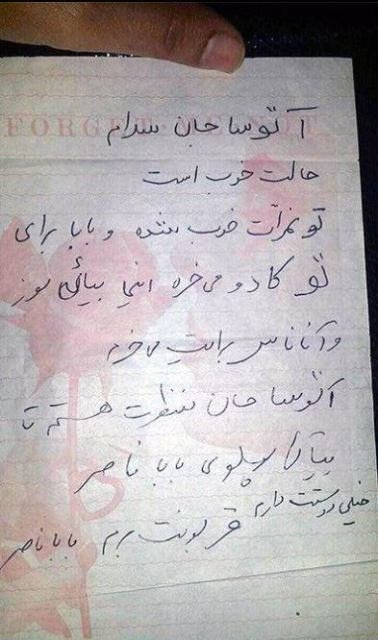 FORGET ME NOT
آتوسا جان سلام
حالت خوب است
تو نمراتت خوب شده و بابا برای
تو کادو می خره اینجا بیائی موز
و آناناس برایت می خرم
آتوسا جان منتظرت هستم تا
بیای پهلوی بابا ناصر
خیلی دوستت دارم قربونت برم بابا ناصر